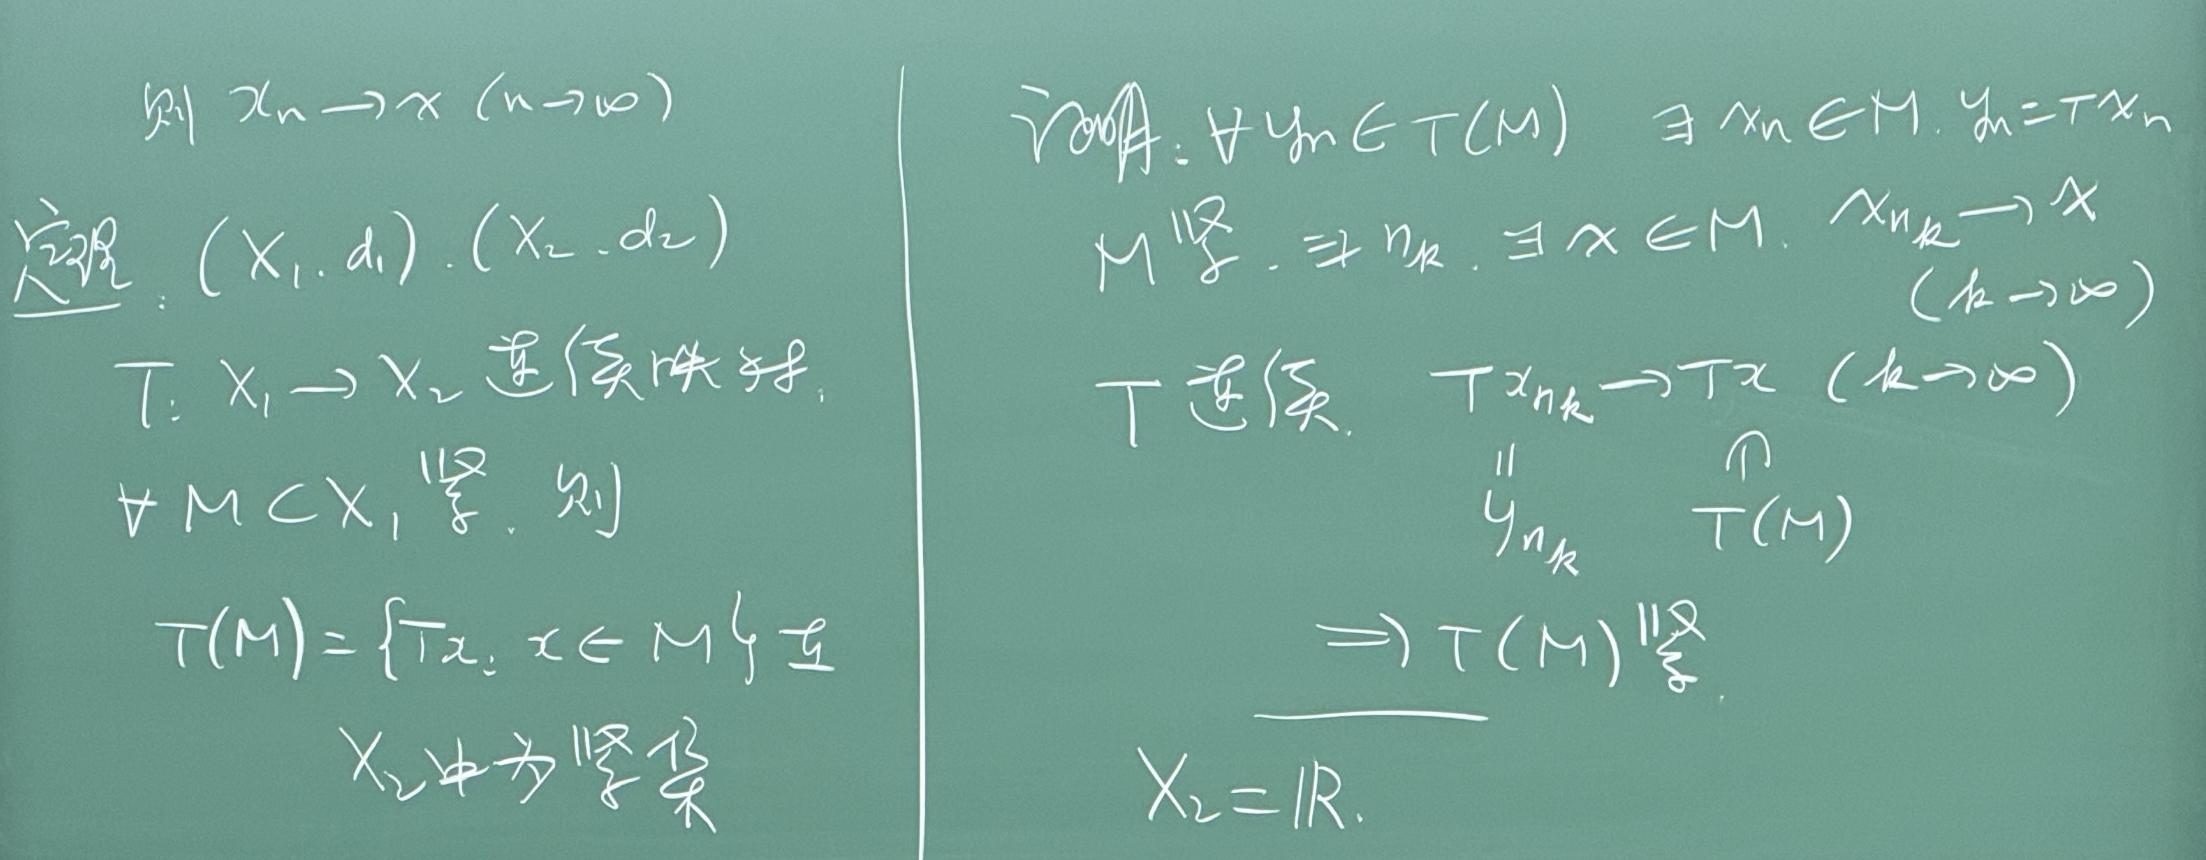 则 xₙ → x (n→∞)
定理: (X₁, d₁). (X₂, d₂)
T: X₁ → X₂ 连续映射.
∀ M ⊂ X₁ 紧. 则
T(M) = {Tx: x ∈ M} 在
X₂ 中为紧集
证明: ∀ yₙ ∈ T(M) ∃ xₙ ∈ M. yₙ = Txₙ
M 紧. ⇒ n_k. ∃ x ∈ M. x_{n_k} → x
(k→∞)
T 连续. Tx_{n_k} → Tx (k→∞)
|| ∩
y_{n_k} T(M)
⇒ T(M) 紧.
X₂ = ℝ.